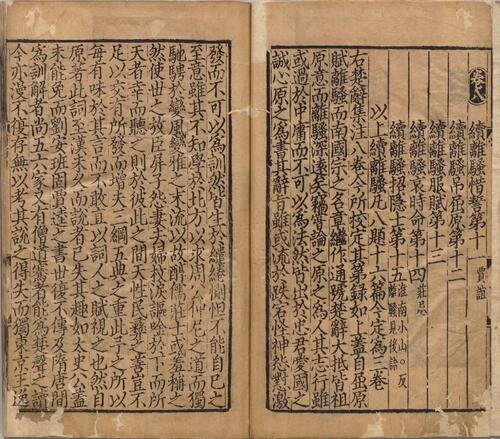 卷八
續離騷惜誓第十一 賈誼
續離騷弔屈原第十二
續離騷服賦第十三
續離騷哀時命第十四 莊忌
續離騷招隱士第十五 淮南小山○反離騷見後語
以上續離騷凡八題十六篇今定爲三卷
右楚辭集注八卷今所校定其第録如上蓋自屈原
賦離騷而南國宗之名章繼作通號楚辭大抵皆祖
原意而離騷深遠矣竊嘗論之原之爲人其志行雖
或過於中庸而不可以爲法然皆出於忠君愛國之
誠心原之爲書其辭旨雖或流於跌宕怪神怨懟激
發而不可以爲訓然皆生於繾綣惻怛不能自已之
至意雖其不知學於北方以求周公仲尼之道而獨
馳騁於變風變雅之末流以故醇儒莊士或羞稱之
然使世之放臣屏子怨妻去婦抆淚謳唫於下而所
天者幸而聽之則於彼此之間天性民彝之善豈不
足以交有所發而增夫三綱五典之重此予之所以
每有味於其言而不敢直以詞人之賦視之也然自
原著此詞至漢未久而說者已失其趣如太史公蓋
未能免而劉安班固賈逵之書世復不傳及隋唐間
爲訓解者尚五六家又有僧道騫者能爲楚聲之讀
今亦漫不復存無以考其說之得失而獨東京王逸